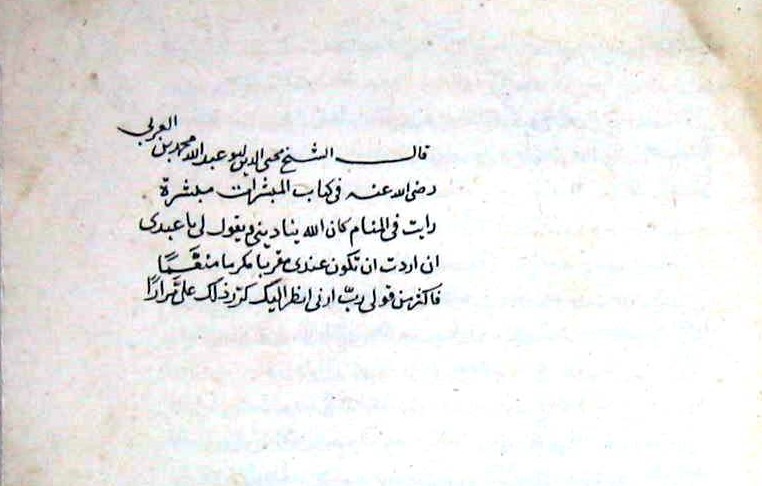 قال الشيخ محيى الدين ابو عبد الله محمد بن العربي
رضى الله عنه فى كتاب المبشرات مبشرة
رايت فى المنام كان الله ينادينى ويقول لى يا عبدى
ان اردت ان تكون عندى مقربا مكرما منعّمًا
فاكثر من قولى ربّ ارنى انظر اليك كرر ذلك علىّ مرارًا